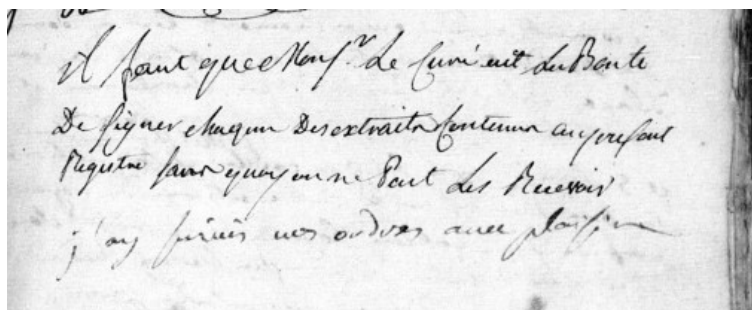 il faut que Monsr Le Curé ait La Bonté
De signer chaqun Des extraits Contenus au present
Registre sans quoy on ne Peut Les Recevoir
j'ay suivis vos ordres avec plaisir